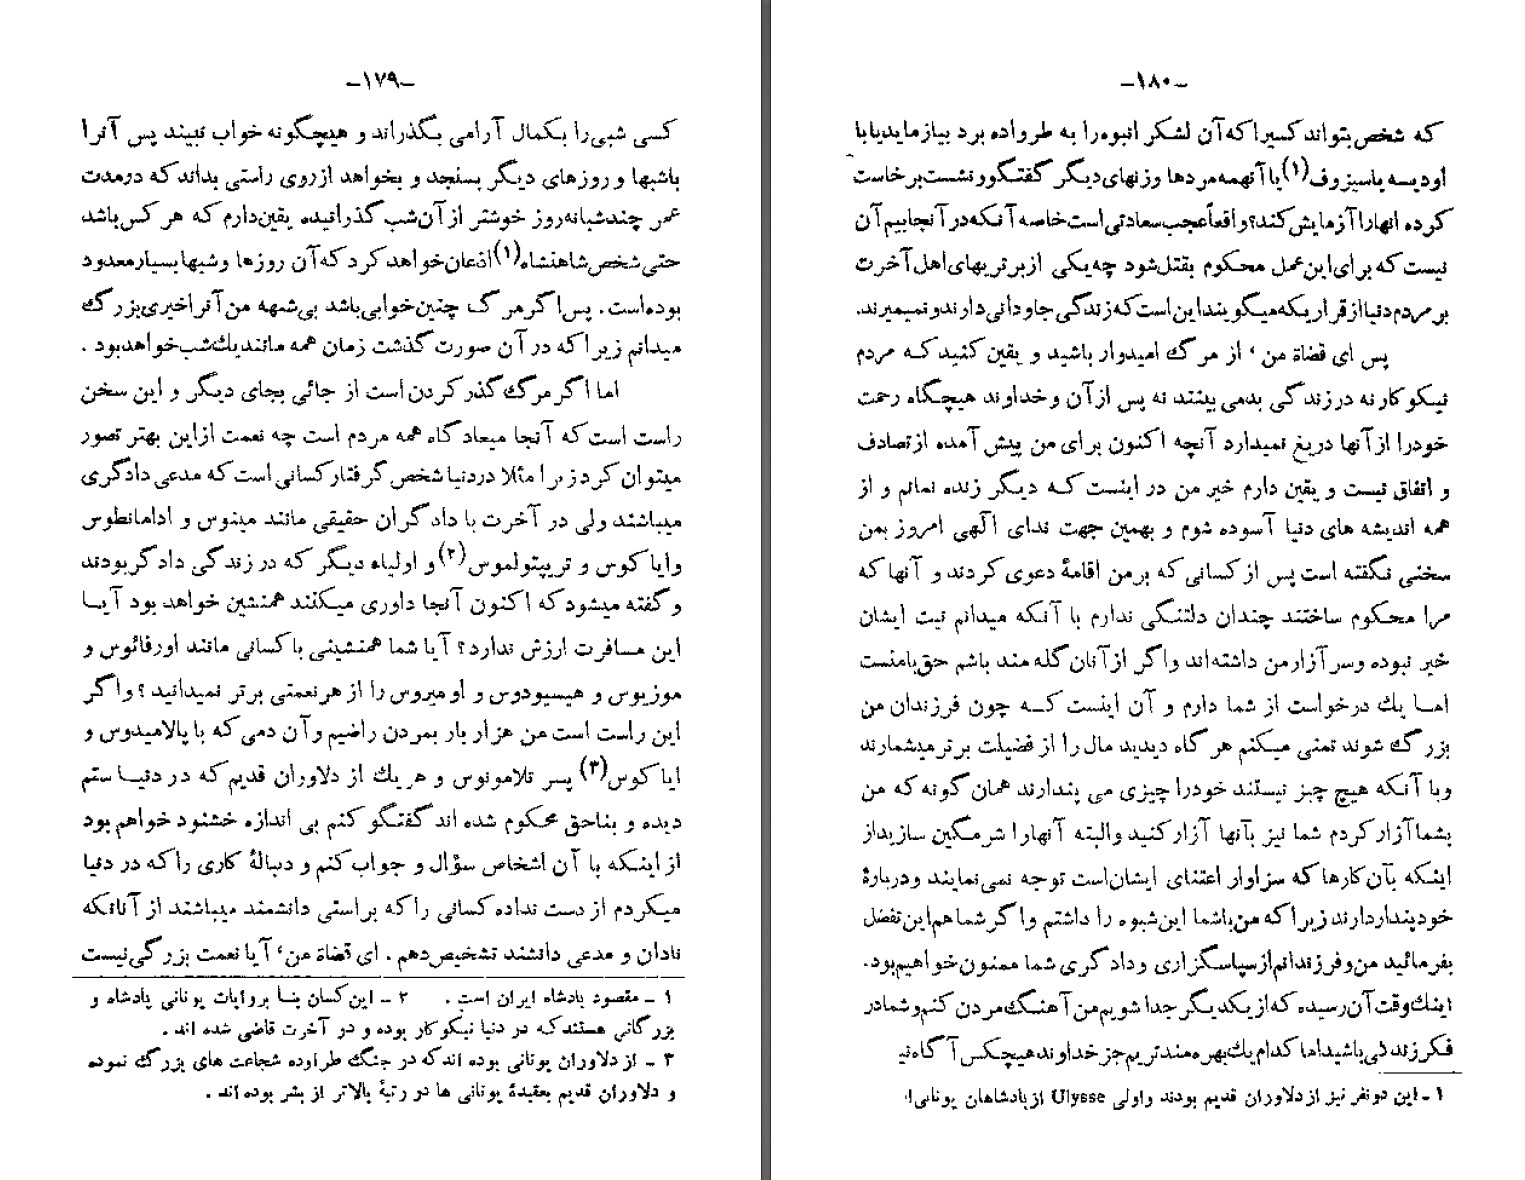 –۱۷۹–
کسی شبی را بکمال آرامی بگذراند و هیچگونه خواب نبیند پس آنرا
باشبها و روزهای دیگر بسنجد و بخواهد از روی راستی بداند که درمدت
عمر چند شبانه روز خوشتر از آن شب گذرانیده یقین دارم که هر کس باشد
حتی شخص شاهنشاه (۱) اذعان خواهد کرد که آن روزها و شبها بسیار معدود
بوده است . پس اگر مرگ چنین خوابی باشد بی شبهه من آنرا خیری بزرگ
میدانم زیرا که در آن صورت گذشت زمان همه مانند یك شب خواهد بود .
اما اگر مرگ گذر کردن است از جائی بجای دیگر و این سخن
راست است که آنجا میعادگاه همه مردم است چه نعمت ازاین بهتر تصور
میتوان کرد زیرا مثلا دردنیا شخص گرفتار کسانی است که مدعی دادگری
میباشند ولی در آخرت با دادگران حقیقی مانند مینوس و ادامانطوس
وایاکوس و تریپتولموس (۲) و اولیاء دیگر که در زندگی دادگر بودند
و گفته میشود که اکنون آنجا داوری میکنند همنشین خواهد بود آیا
این مسافرت ارزش ندارد ؟ آیا شما همنشینی با کسانی مانند اورفائوس و
موزیوس و هیسیودوس و اومیروس را از هر نعمتی برتر نمیدانید ؟ و اگر
این راست است من هزار بار بمردن راضیم و آن دمی که با پالامیدوس و
ایاکوس (۳) پسر تلامونوس و هر یك از دلاوران قدیم که در دنیا ستم
دیده و بناحق محکوم شده اند گفتگو کنم بی اندازه خشنود خواهم بود
از اینکه با آن اشخاص سؤال و جواب کنم و دنبالهٔ کاری را که در دنیا
میکردم از دست نداده کسانی را که براستی دانشمند میباشند از آنانکه
نادان و مدعی دانشند تشخیص دهم . ای قضاة من ، آیا نعمت بزرگی نیست
۱ – مقصود پادشاه ایران است . ۲ – این کسان بنا بروایات یونانی پادشاه و
بزرگانی هستند که در دنیا نیکوکار بوده و در آخرت قاضی شده اند .
۳ – از دلاوران یونانی بوده اند که در جنگ طراوده شجاعت های بزرگ نموده
و دلاوران قدیم بعقیدهٔ یونانی ها در رتبهٔ بالاتر از بشر بوده اند .
–۱۸۰–
که شخص بتواند کسیرا که آن لشکر انبوه را به طرواده برد بیازماید یا با
اودیسه یا سیزوف (۱) یا آنهمه مردها وزنهای دیگر گفتگو و نشست برخاست
کرده انهارا آزمایش کند؟ واقعاً عجب سعادتی است خاصه آنکه در آنجا بیم آن
نیست که برای این عمل محکوم بقتل شود چه یکی از برتریهای اهل آخرت
بر مردم دنیا از قراریکه میگویند این است که زندگی جاودانی دارند و نمیمیرند.
پس ای قضاة من ، از مرگ امیدوار باشید و یقین کنید که مردم
نیکوکار نه در زندگی بدمی بینند نه پس از آن و خداوند هیچگاه رحمت
خودرا از آنها دریغ نمیدارد آنچه اکنون برای من پیش آمده از تصادف
و اتفاق نیست و یقین دارم خیر من در اینست که دیگر زنده نمانم و از
همه اندیشه های دنیا آسوده شوم و بهمین جهت ندای الهی امروز بمن
سخنی نگفته است پس از کسانی که بر من اقامهٔ دعوی کردند و آنها که
مرا محکوم ساختند چندان دلتنگی ندارم با آنکه میدانم نیت ایشان
خیر نبوده وسر آزار من داشته اند و اگر از آنان گله مند باشم حق بامنست
اما یك درخواست از شما دارم و آن اینست که چون فرزندان من
بزرگ شوند تمنی میکنم هر گاه دیدید مال را از فضیلت برتر میشمارند
وبا آنکه هیچ چیز نیستند خودرا چیزی می پندارند همان گونه که من
بشما آزار کردم شما نیز بآنها آزار کنید والبته آنهارا شرمگین سازید از
اینکه بآن کارها که سزاوار اعتنای ایشان است توجه نمی نمایند و دربارهٔ
خود پندار دارند زیرا که من باشما این شیوه را داشتم و اگر شما هم این تفضل
بفرمائید من و فرزندانم از سپاسگزاری و دادگری شما ممنون خواهیم بود.
اینك وقت آن رسیده که از یکدیگر جدا شویم من آهنگ مردن کنم و شما در
فکر زندگی باشید اما کدام یك بهره مند تریم جز خداوند هیچکس آگاه نی
۱ – این دو نفر نیز از دلاوران قدیم بودند و اولی Ulysse از پادشاهان یونانی